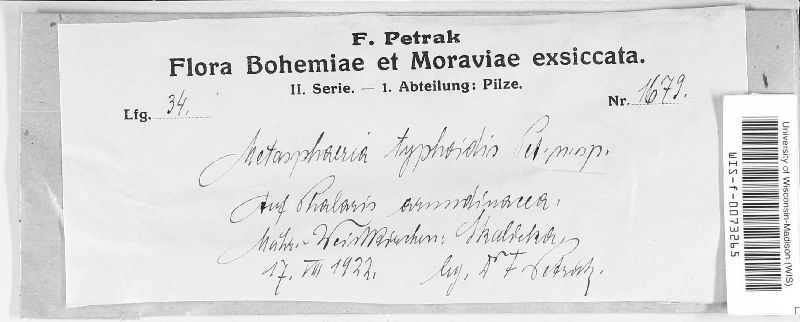 F. Petrak
Flora Bohemiae et Moraviae exsiccata.
II. Serie. — 1. Abteilung: Pilze.
Lfg. 34.
Nr. 1679.
Metasphaeria typhoidis Pet. n. sp.
Auf Phalaris arundinacea.
Mähr.-Weisskirchen: Skalička.
17. VIII 1922. leg. Dr F Petrak.
University of Wisconsin-Madison (WIS)
WIS-f-0073265